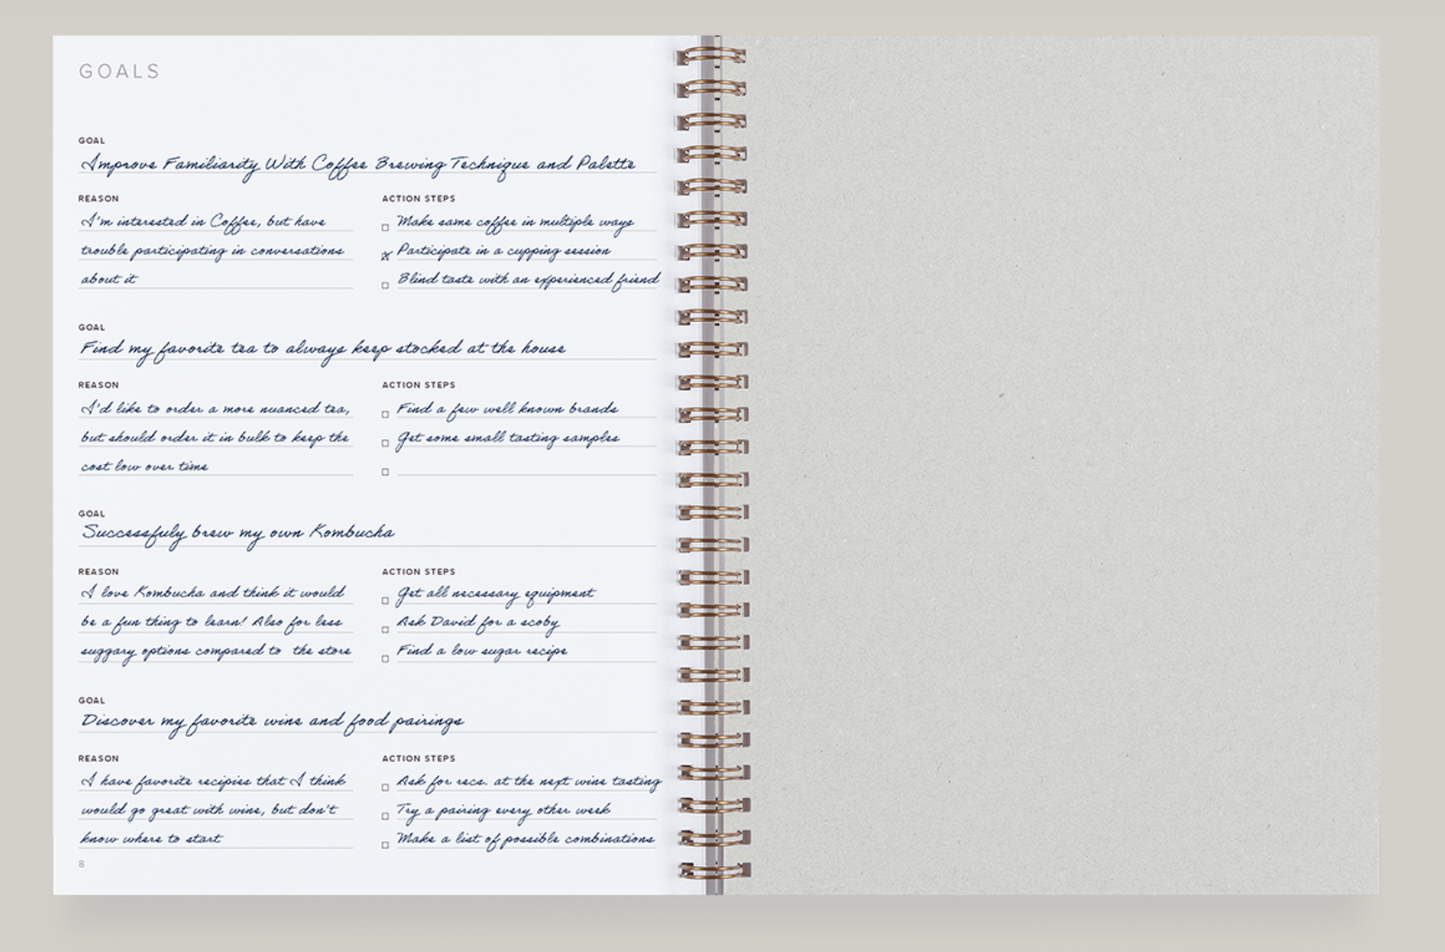 GOALS
GOAL
Improve Familiarity With Coffee Brewing Technique and Palette
REASON
I'm interested in Coffee, but have
trouble participating in conversations
about it
ACTION STEPS
Make same coffee in multiple ways
x Participate in a cupping session
Blind taste with an experienced friend
GOAL
Find my favorite tea to always keep stocked at the house
REASON
I'd like to order a more nuanced tea,
but should order it in bulk to keep the
cost low over time
ACTION STEPS
Find a few well known brands
Get some small tasting samples
GOAL
Successfuly brew my own Kombucha
REASON
I love Kombucha and think it would
be a fun thing to learn! Also for less
suggary options compared to the store
ACTION STEPS
Get all necessary equipment
Ask David for a scoby
Find a low sugar recipe
GOAL
Discover my favorite wine and food pairings
REASON
I have favorite recipies that I think
would go great with wine, but don't
know where to start
ACTION STEPS
Ask for recs. at the next wine tasting
Try a pairing every other week
Make a list of possible combinations
8